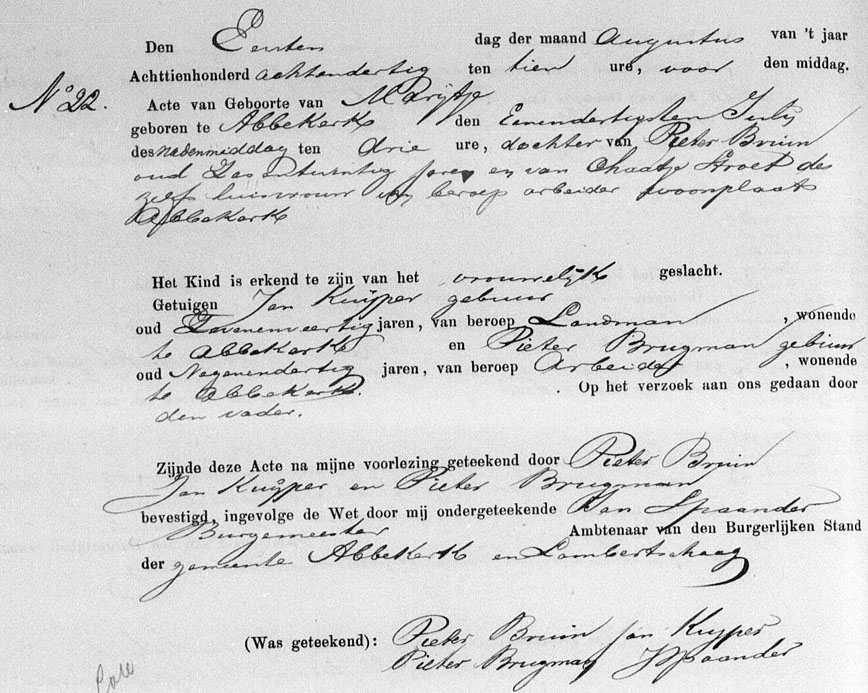 Den Eersten dag der maand Augustus van 't jaar
Achttienhonderd achtendertig ten tien ure, voor den middag.
No 22. Acte van Geboorte van Marijtje
geboren te Abbekerk den Eenendertigsten July
des nadenmiddag ten drie ure, dochter van Pieter Bruin
oud Zesentwintig jaren en van Stroet des
zelfs huisvrouw van beroep arbeider woonplaats
Abbekerk
Het Kind is erkend te zijn van het vrouwelijk geslacht.
Getuigen Jan Kuijper gebuur
oud Zevenenveertig jaren, van beroep Landman, wonende
te Abbekerk en Pieter Brugman gebuur
oud Negenendertig jaren, van beroep Arbeider, wonende
te Abbekerk. Op het verzoek aan ons gedaan door
den vader.
Zijnde deze Acte na mijne voorlezing geteekend door Pieter Bruin
Jan Kuijper en Pieter Brugman
bevestigd, ingevolge de Wet door mij ondergeteekende Jan Spaander
Burgemeester Ambtenaar van den Burgerlijken Stand
der gemeente Abbekerk en Lambertschaag
(Was geteekend): Pieter Bruin Jan Kuyper
Pieter Brugman J Spaander